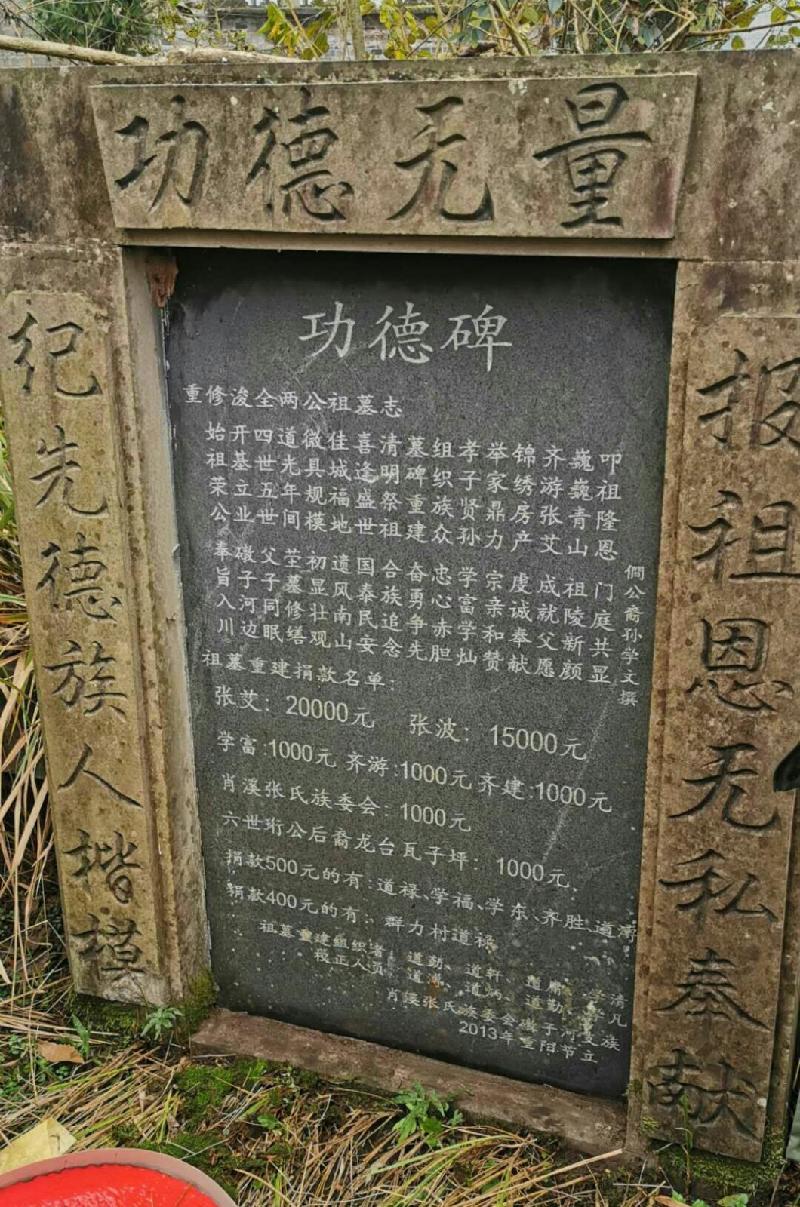 功德无量
报祖恩无私奉献
纪先德族人楷模
功德碑
重修浚全两公祖墓志
始祖荣公 奉旨入川
开基立业 磁子河边
四世五世 父子同眠
道光年间 茔墓修缮
微具规模 初显壮观
佳城福地 遗风南山
喜逢盛世 国泰民安
清明祭祖 合族追念
墓碑重建 奋勇争先
组织族众 忠心赤胆
孝子贤孙 学富学灿
举家鼎力 宗亲和赞
锦绣房产 虔诚奉献
齐游张艾 成就父愿
巍巍青山 祖陵新颜
叩祖隆恩 门庭共显
公裔孙学文撰
祖墓重建捐款名单:
张艾: 20000元 张波: 15000元
学富:1000元 齐游:1000元 齐建:1000元
肖溪张氏族委会: 1000元
六世珩公后裔龙台瓦子坪: 1000元、
捐款500元的有:道禄、学福、学东、齐胜、道
捐款400元的有: 群力村道禄
祖墓重建组织者: 道勤、道轩
校正人员:
肖溪张氏族委会磁子河支族
2013年重阳节立